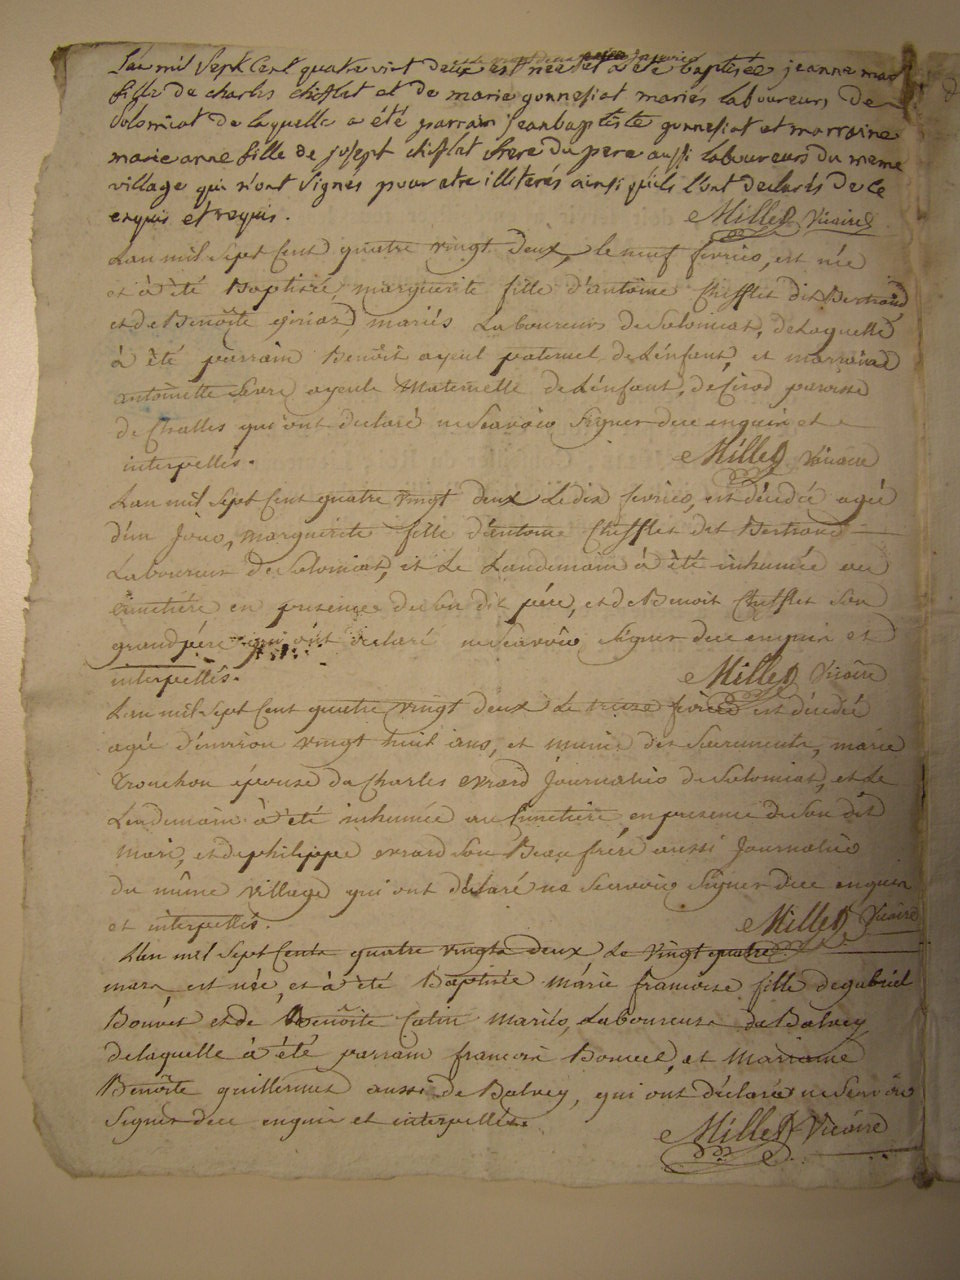 L'an mil sept cent quatre vint deux est née et a été baptisée jeanne mar
fille de charles chifflet et de marie gonnesiat mariés laboureurs de
Solomiat de laquelle a été parrain jeanbaptiste gonnesiat et marraine
marie anne fille de joseph chifflet frere du pere aussi laboureurs du meme
village qui n'ont signés pour etre illiterés ainsi qu'ils l'ont declarés de ce
enquis et requis. Millet Vicaire
L'an mil sept cent quatre vingt deux, le neuf fevrier, est née
et à été Baptisée marguerite fille d'antoine Chifflet dit Bertrand
et de Benôite mariés Laboureurs de Solomiat, de Laquelle
à été parrain Benôit ayeul paternel de L'énfant, et marraine
antoinette ayeule Maternelle de L'énfant, de Cirod paroisse
de Challes qui ont declaré ne Scavoir Signer de ce enquis et
interpellés. Millet Vicaire
L'an mil sept Cent quatre vingt deux Le dix fevrier, est décédée agée
d'un Jour, marguerite fille d'antoine Chifflet dit Bertrand
Laboureur de Solomiat, et Le Landemain à été inhumée au
cimetiére en presence de son dit pére, et de Benoit Chifflet Son
grand pére qui ont declaré ne Scavoir Signer de ce enquis et
interpellés. Millet Vicaire
L'an mil sept Cent quatre vingt deux Le treize fevrier est décédée
agée d'environ vingt huit ans, et munie des Sacrements, marie
épouse de Charles evrard Journalier de Solomiat, et Le
Lendemain à été inhumée au Cimetiére en presence de Son dit
mari, et de philippe evrard Son Beau frére aussi Journalier
du même village qui ont déclaré ne Scavoir Signer de ce enquis
et interpellés. Millet Vicaire
L'an mil Sept Cents quatre vingts deux Le vingt quatre
mars est née, et à été Baptisée márie francoise fille de gabriel
Bouvet et de Benôite mariés, Laboureurs de Balvey
de laquelle à été parrain francois Bouvet, et Marraine
Benôite guillermet aussi de Balvey, qui ont déclaré ne Scavoir
Signer de ce enquis et interpellés. Millet Vicaire